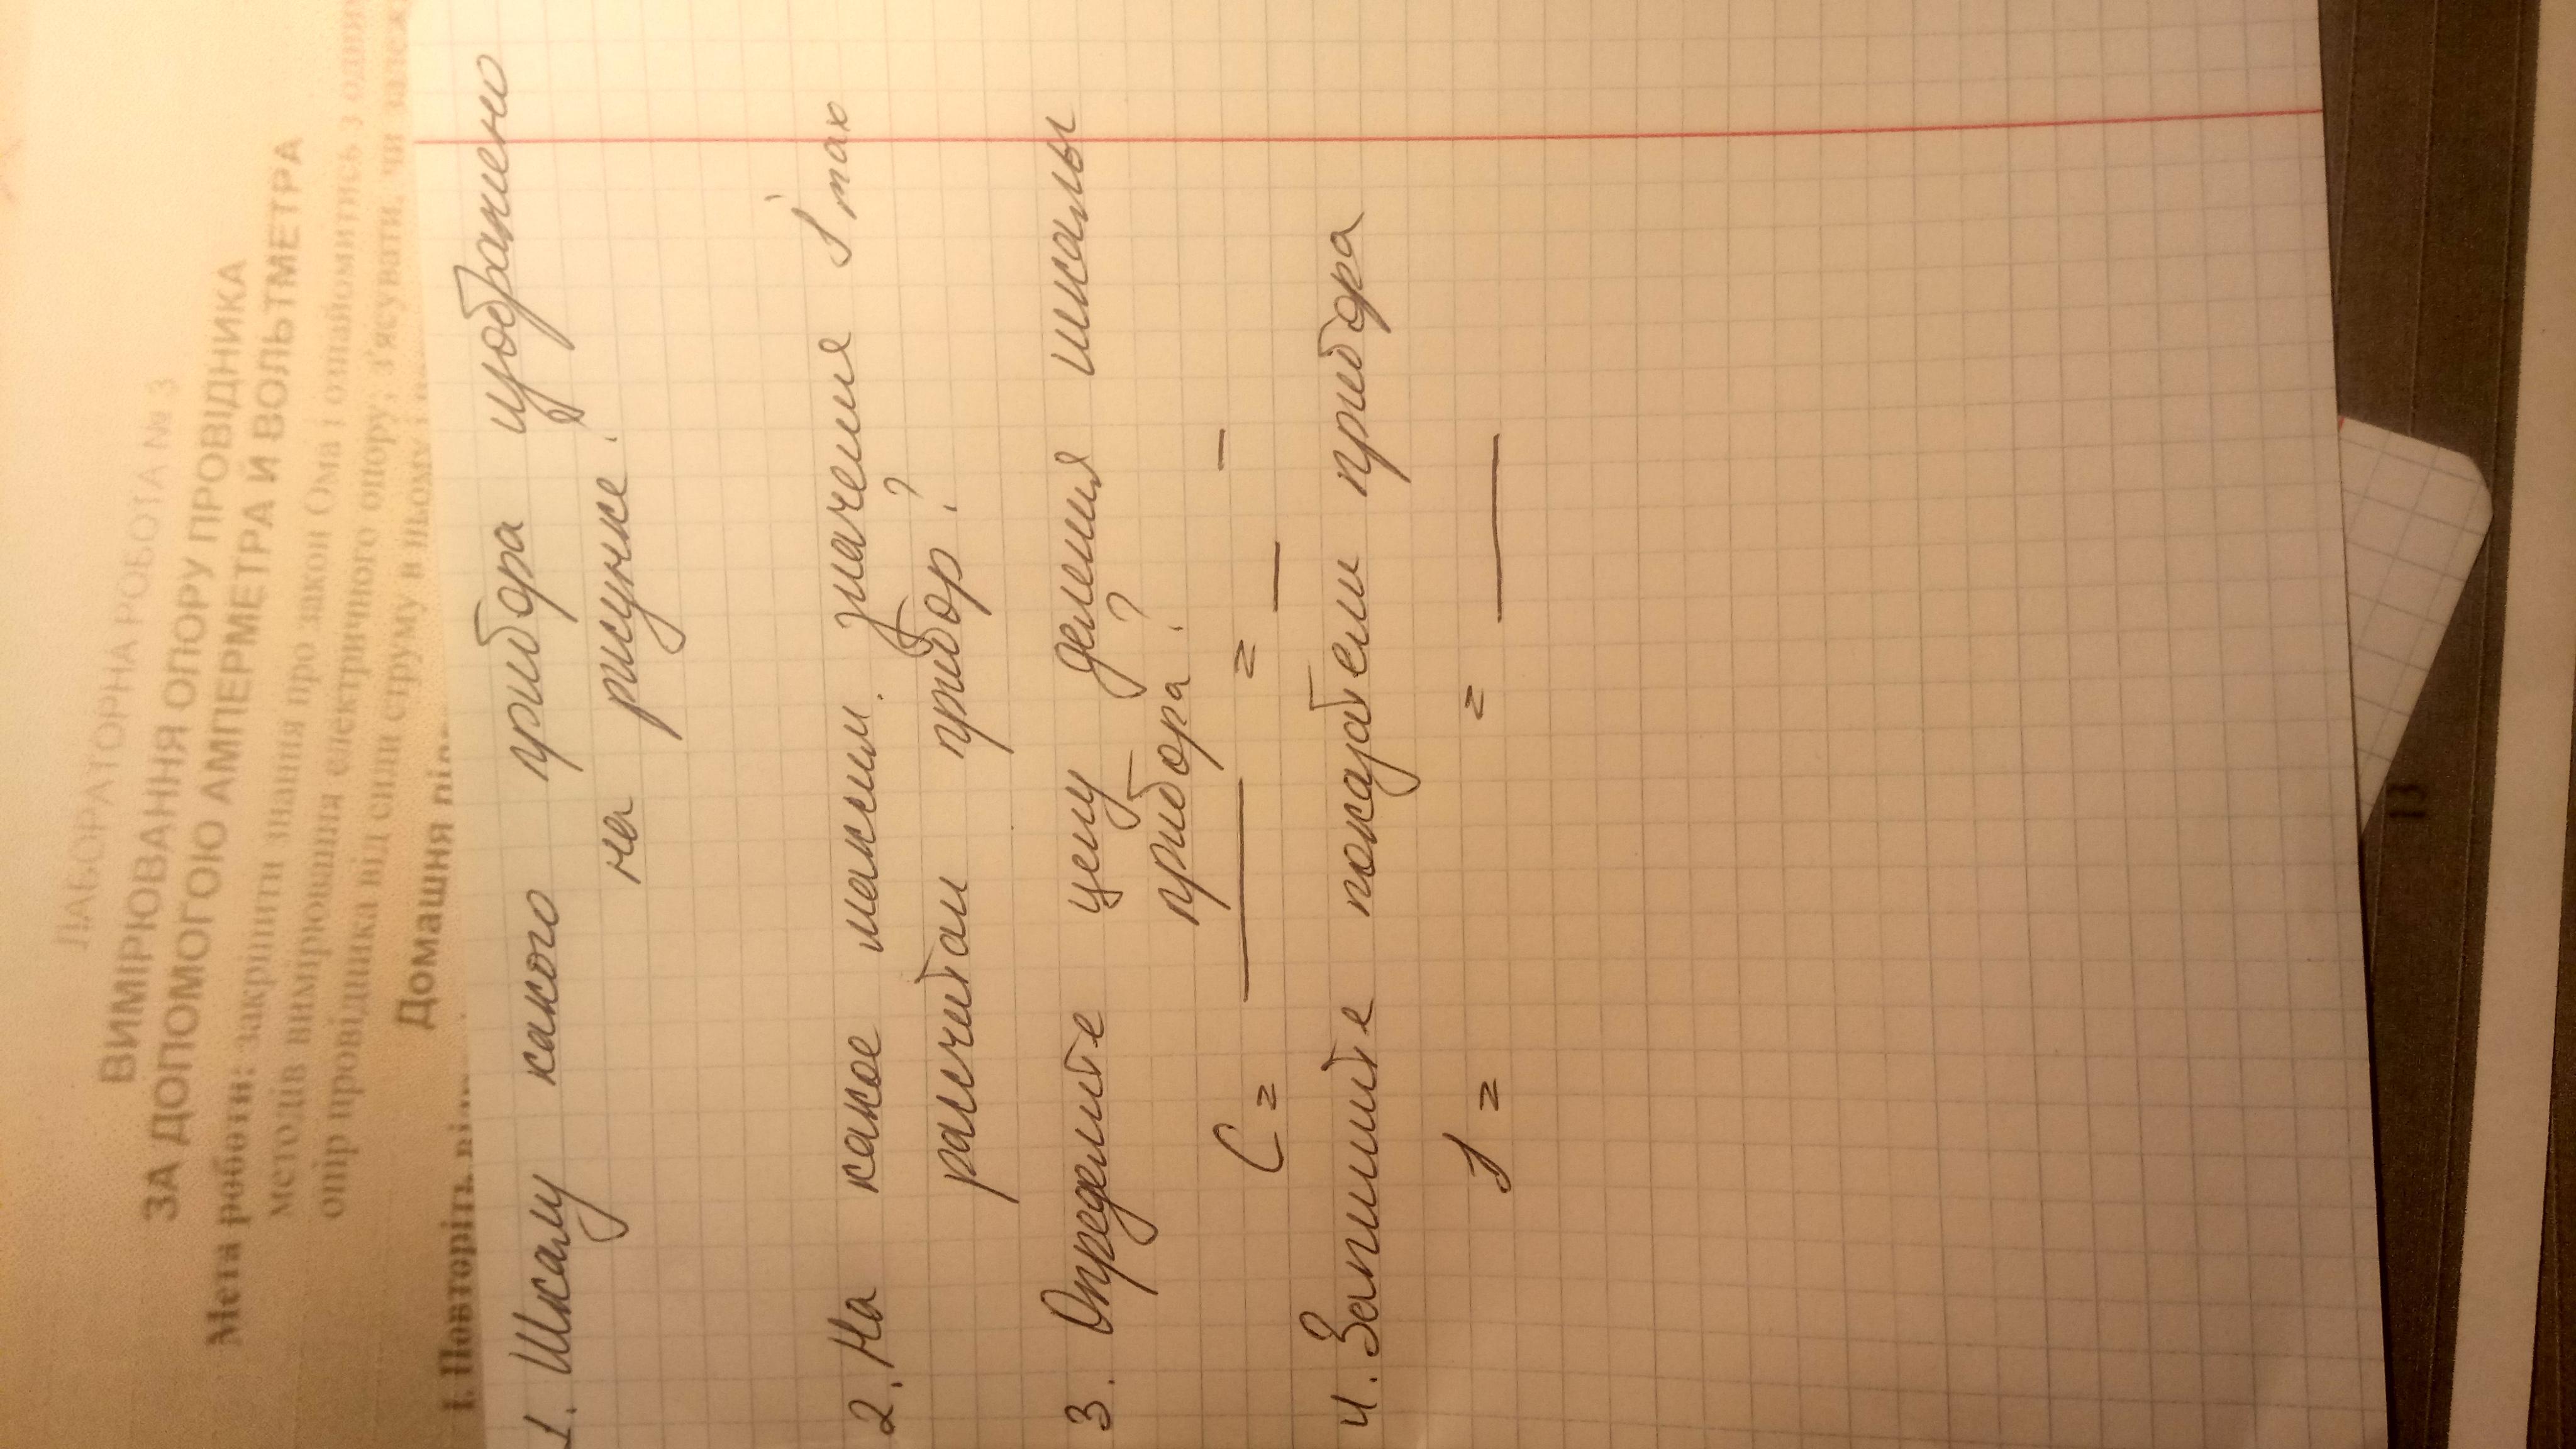 ЛАБОРАТОРНА РОБОТА № 3
ВИМІРЮВАННЯ ОПОРУ ПРОВІДНИКА
ЗА ДОПОМОГОЮ АМПЕРМЕТРА Й ВОЛЬТМЕТРА
Мета роботи: закріпити знання про закон Ома і ознайомитись з одним
методів вимірювання електричного опору; з'ясувати, чи залежи
опір провідника від сили струму в ньому і
Домашня
1. Повторіть
1. Шкалу какого прибора изображено
на рисунке?
2. На какое максим. значение I max
расчитан прибор?
3. Определите цену деления шкалы
прибора?
C = ___ = _ _
4. Запишите показатели прибора
I = = ___
13